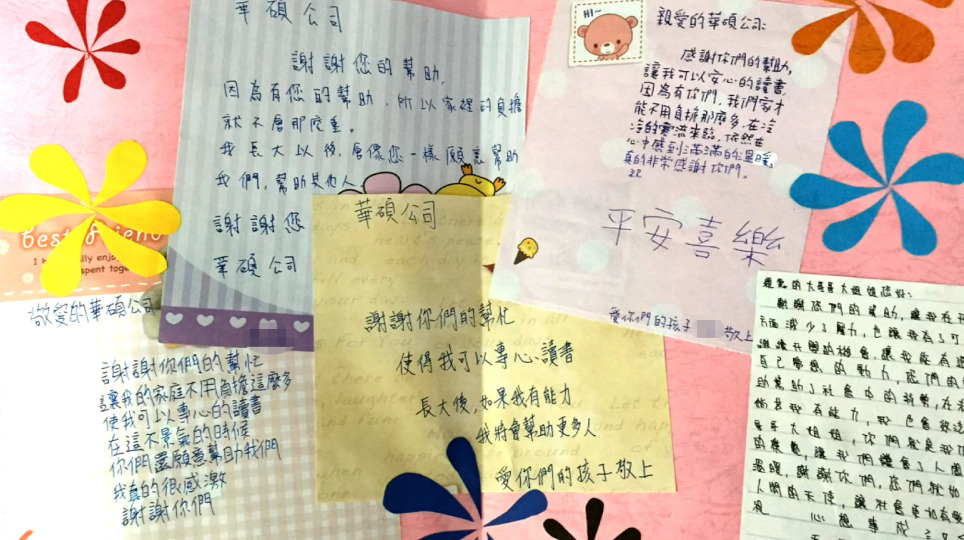 華碩公司
謝謝您的幫助,
因為有您的幫助,所以家裡的負擔
就不會那麼重。
我長大以後,會像您一樣願意幫助
我們,幫助其他人
謝謝您
華碩公司
HI~
親愛的華碩公司:
感謝你們的幫助,
讓我可以安心的讀書,
因為有你們,我們家才
能不用負擔那麼多,在冷
冷的寒流來臨,依然在
心中感到滿滿的溫暖,
真的非常感謝你們。
平安喜樂
愛你們的孩子
敬上
best friend
spent together
敬愛的華碩公司
謝謝你們的幫忙
讓我的家庭不用負擔這麼多
使我可以專心的讀書
在這不景氣的時候
你們還願意幫助我們
我真的很感激
謝謝你們
華碩公司
謝謝你們的幫忙
使得我可以專心讀書
長大後,如果我有能力
我將會幫助更多人
愛你們的孩子敬上
親愛的大哥哥大姐姐您好:
謝謝您們的幫助,讓我在
方面減少了壓力,也讓我有了可
繼續升學的機會,讓我能為
自己
的動力,您們的
助幫助了社會中的弱勢,在
倘若我有能力,我也會
哥哥大姐姐,你們就是我
的榜樣,讓我們體會了人間
溫暖,謝謝你們,您們就如
人間的天使,讓社會更加有愛
祝 心想事成